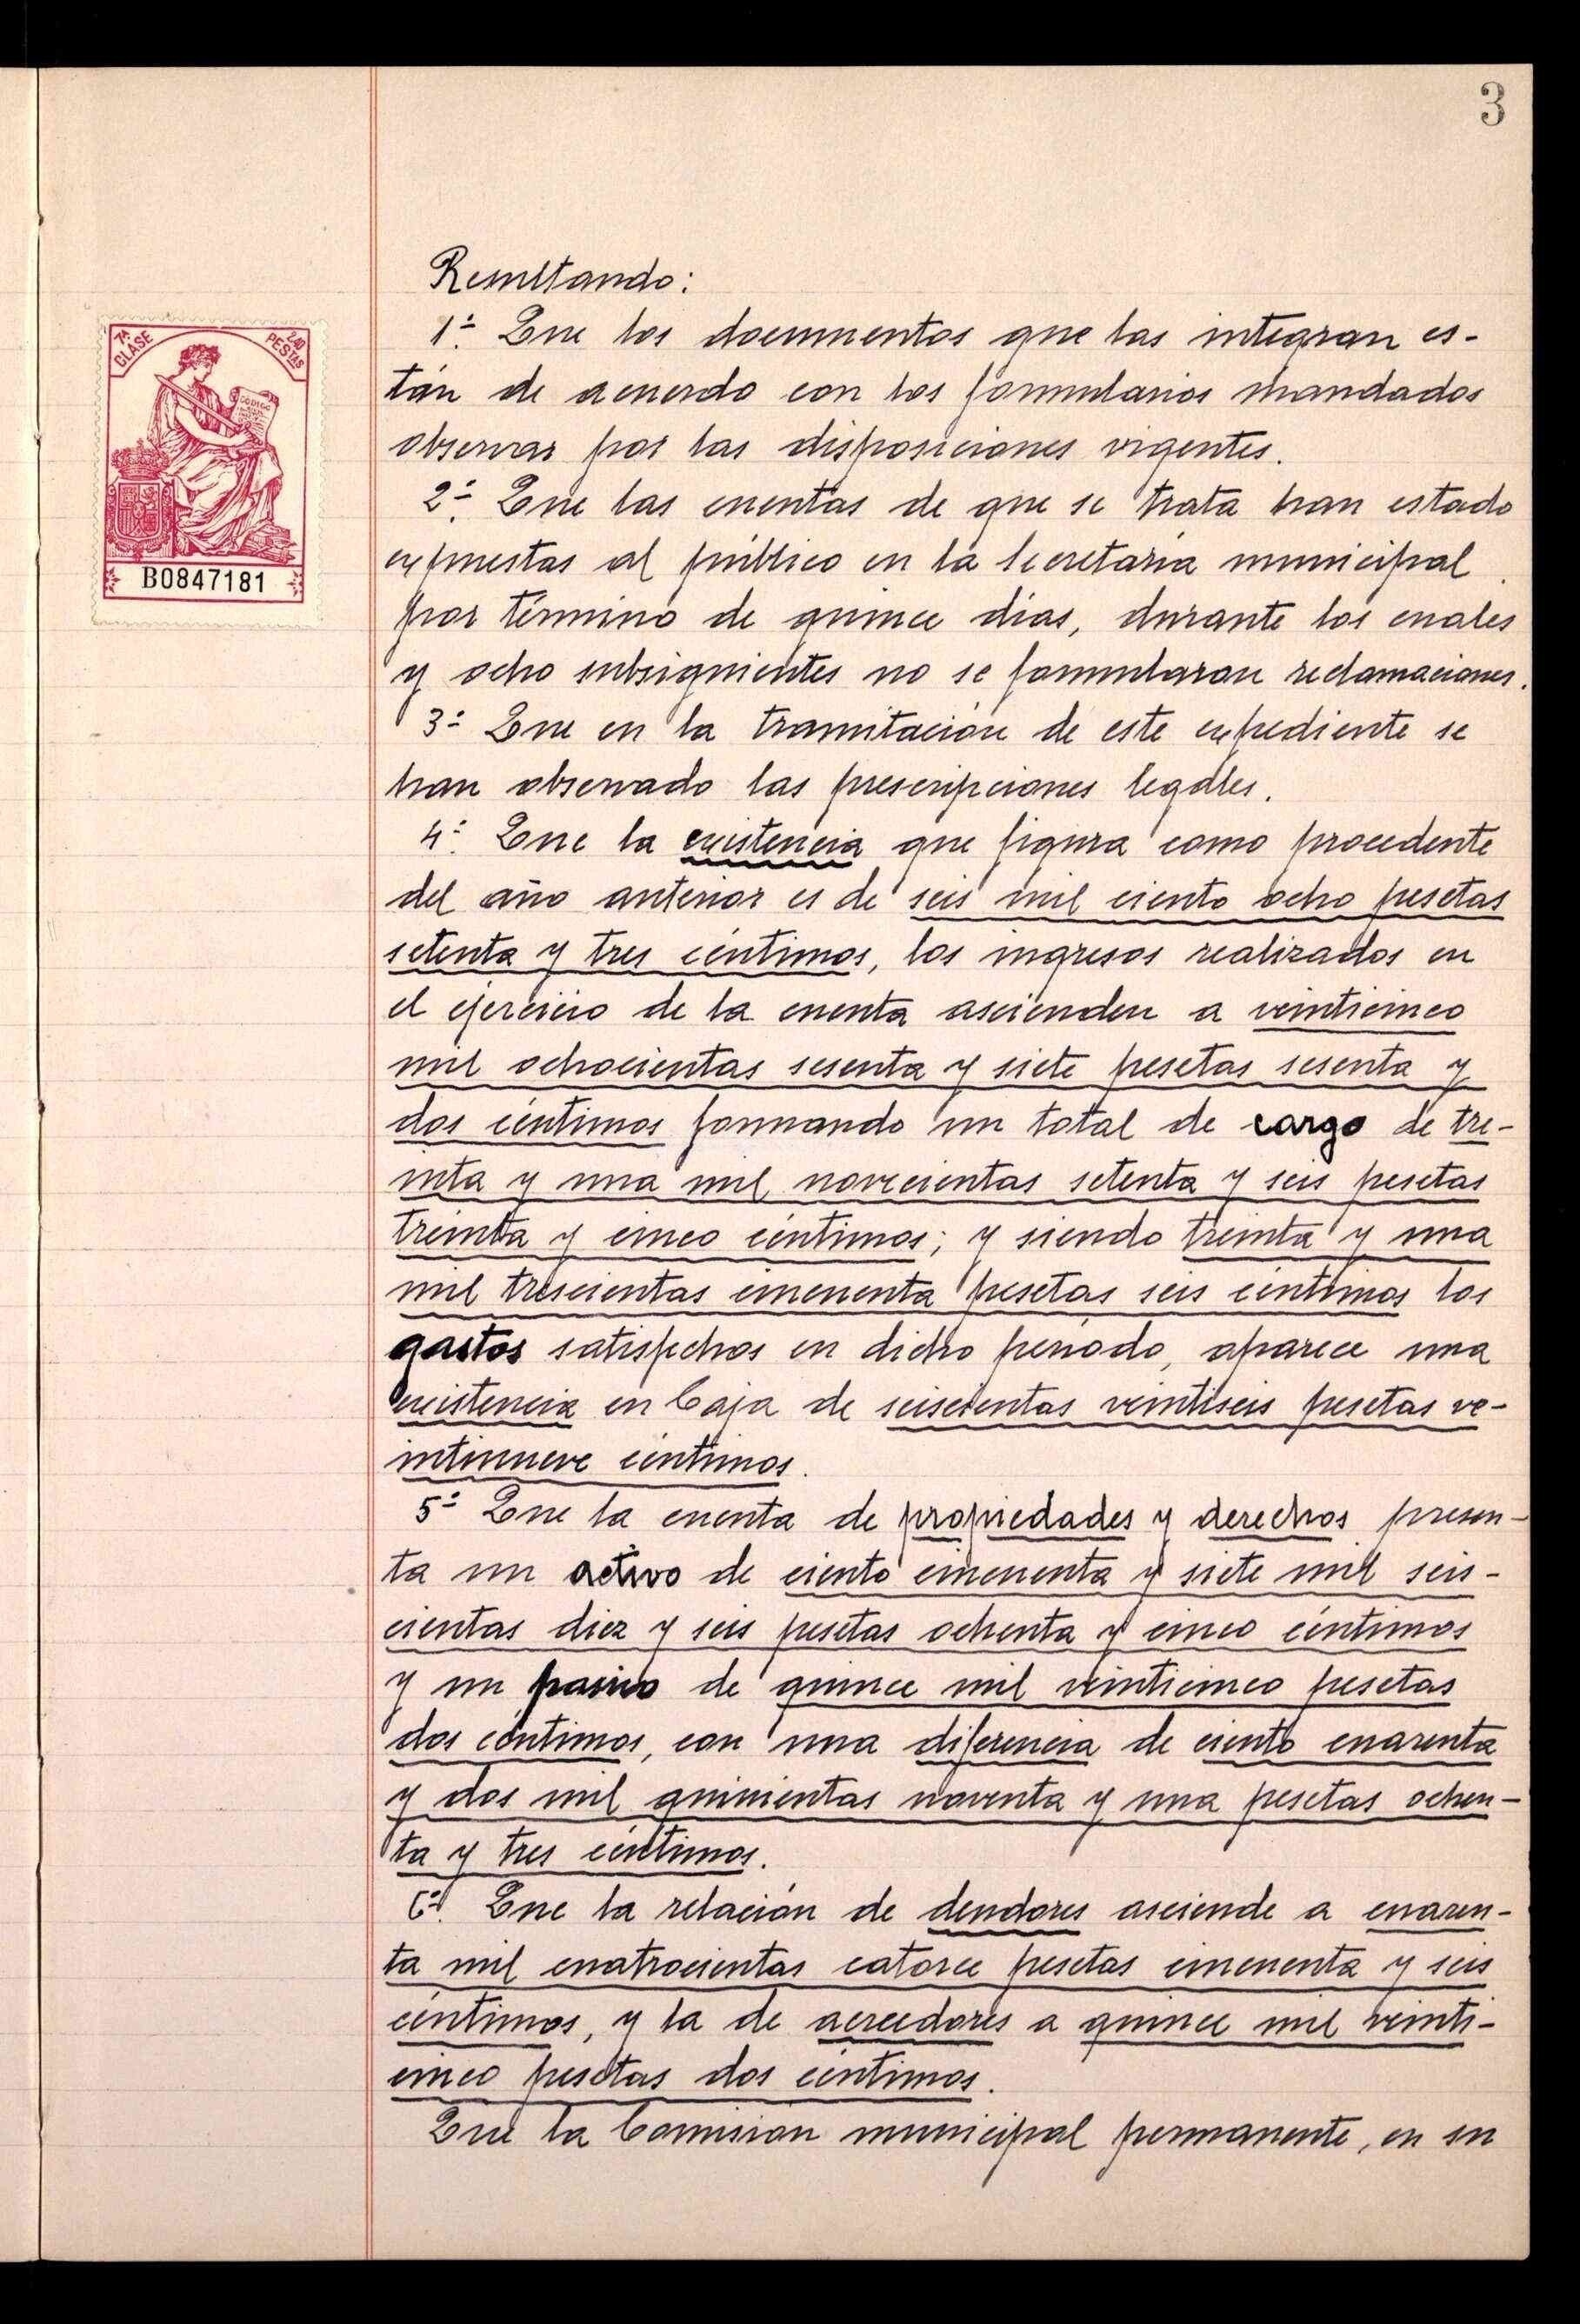 3
Resultando:
1º. Que los documentos que las integran es-
tán de acuerdo con los formularios mandados
observar por las disposiciones vigentes.
2º. Que las cuentas de que se trata han estado
expuestas al público en la Secretaría municipal
por término de quince días, durante los cuales
y ocho subsiguientes no se formularon reclamaciones.
3º Que en la tramitación de este expediente se
han observado las prescripciones legales.
4º. Que la existencia que figura como procedente
del año anterior es de seis mil ciento ocho pesetas
setenta y tres céntimos, los ingresos realizados en
el ejercicio de la cuenta ascienden a veinticinco
mil ochocientas sesenta y siete pesetas sesenta y
dos céntimos formando un total de cargo de tre-
inta y una mil novecientas setenta y seis pesetas
treinta y cinco céntimos; y siendo treinta y una
mil trescientas cincuenta pesetas seis céntimos los
gastos satisfechos en dicho período, aparece una
existencia en Caja de seiscientas veintiseis pesetas ve-
intinueve céntimos.
5º Que la cuenta de propiedades y derechos presen-
ta un activo de ciento cincuenta y siete mil seis-
cientas diez y seis pesetas ochenta y cinco céntimos
y un pasivo de quince mil veinticinco pesetas
dos céntimos, con una diferencia de ciento cuarenta
y dos mil quinientas noventa y una pesetas ochen-
ta y tres céntimos.
6º. Que la relación de deudores asciende a cuaren-
ta mil cuatrocientas catorce pesetas cincuenta y seis
céntimos, y la de acreedores a quince mil veinti-
cinco pesetas dos céntimos.
Que la Comisión municipal permanente, en su
7ª CLASE
2,40 PESTAS
CÓDIGO
B0847181